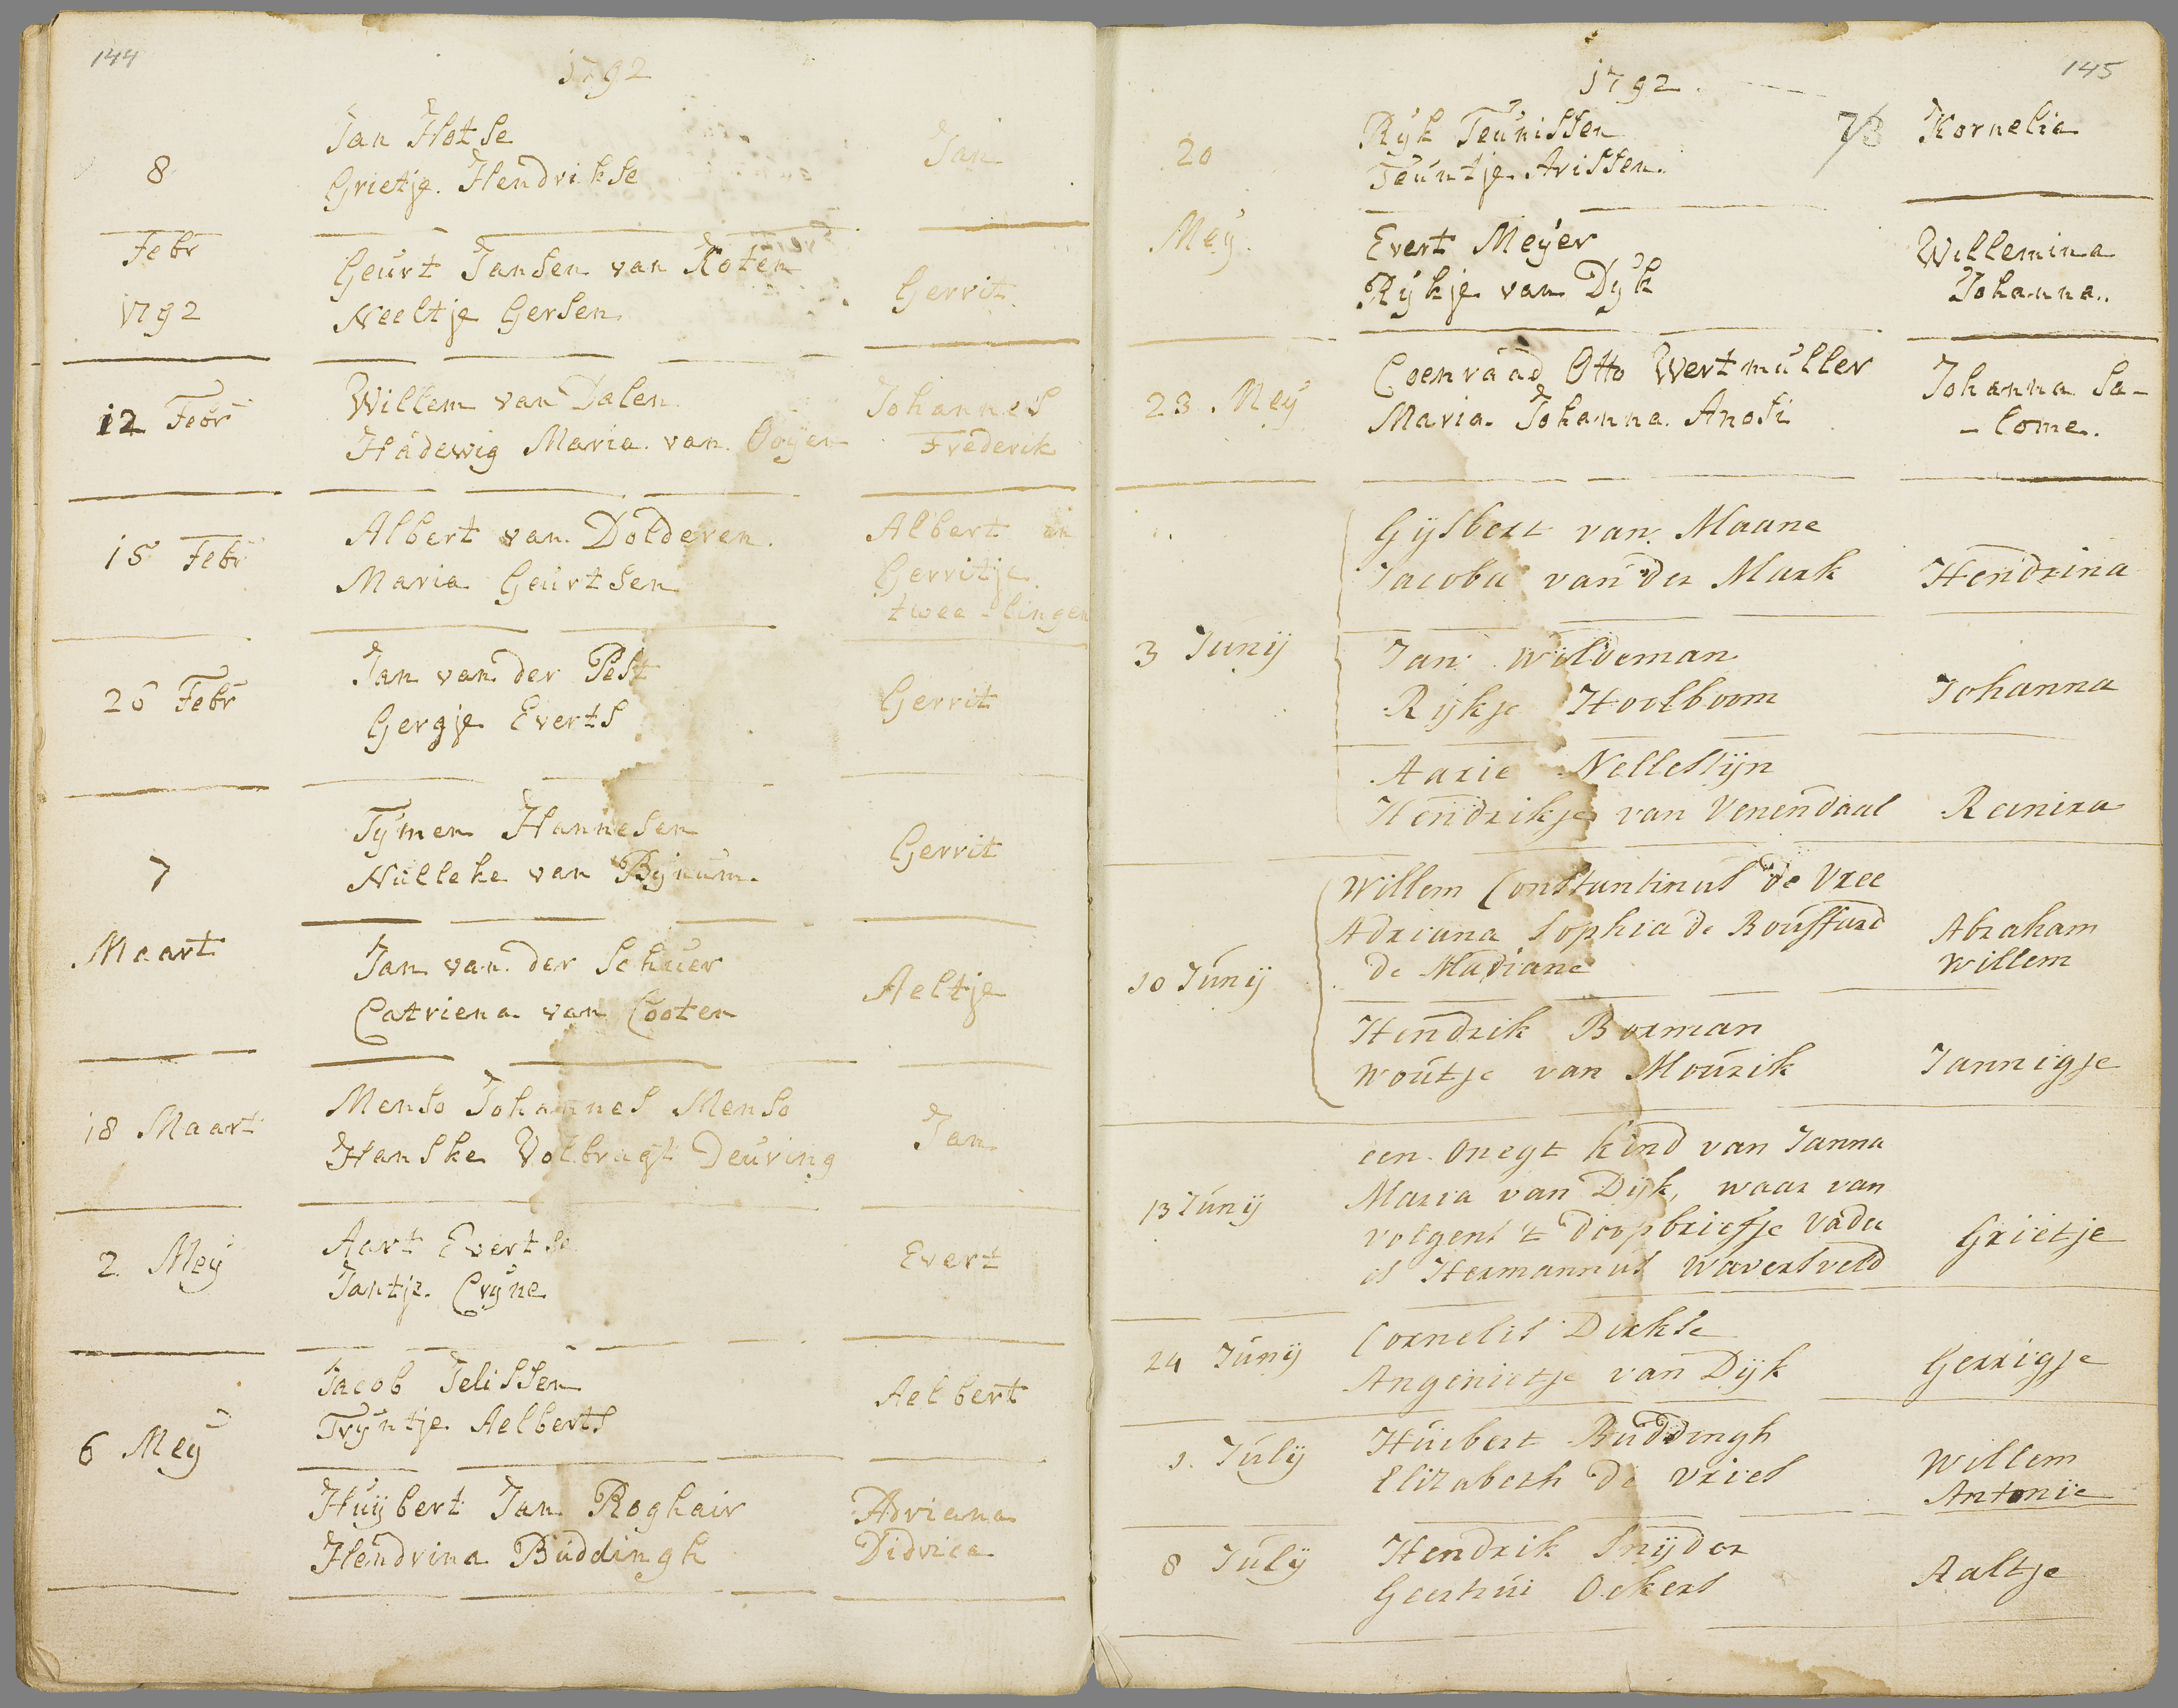 144
1792
8
Jan Hotse
Grietje Hendrikse
Jan
Febr
1792
Geurt Jansen van Koten
Neeltje Gersen
Gerrit
12 Febr
Willem van Dalen
Hadewig Maria van Ooyen
Johannes
Frederik
15 Febr
Albert van Dolderen
Maria Geurtsen
Albert en
Gerritje
twee-lingen
26 Febr
Jan van der Pest
Gergje Everts
Gerrit
7
Maart
Tymen Hannesen
Nulleke van Bynum
Gerrit
Jan van der Schuer
Catriena van Cooten
Aeltje
18 Maart
Menso Johannes Menso
Hanske Volbragt Deuring
Jan
2 Mey
Aart Evertse
Jantje Cryne
Evert
6 Mey
Jacob Jelissen
Tryntje Aelberts
Aelbert
Huijbert Jan Roghair
Hendrina Buddingh
Adriana
Didrica
145
1792.
20
Mey
Ryk Teunissen
Teuntje Arissen
Kornelia
Evert Meyer
Rykje van Dyk
Willemina
Johanna
23 Mey
Coenraad Otto Wertmuller
Maria Johanna Anosi
Johanna Sa-
-lome.
3 Junij
Gijsbert van Maane
Jacoba van der Mark
Hendrina
Jan Wildeman
Rijkje Hoolboom
Johanna
Aarie Nellestijn
Hendrikje van Venendaal
Reinira
10 Junij
Willem Constantinus de Vree
Adriana Sophia de Roussard
de Madiane
Abraham
Willem
Hendrik Borman
Woutje van Mourik
Jannigje
13 Junij
een onegt kind van Janna
Maria van Dijk, waar van
volgens 't doopbriefje vader
is Hermannus Waversveld
Grietje
24 Junij
Cornelis Dirkse
Angenietje van Dijk
Gerrigje
1. Julij
Huibert Buddingh
Elizabeth de Vries
Willem
Antonie
8 Julij
Hendrik Snijder
Geertrui Ockers
Aaltje